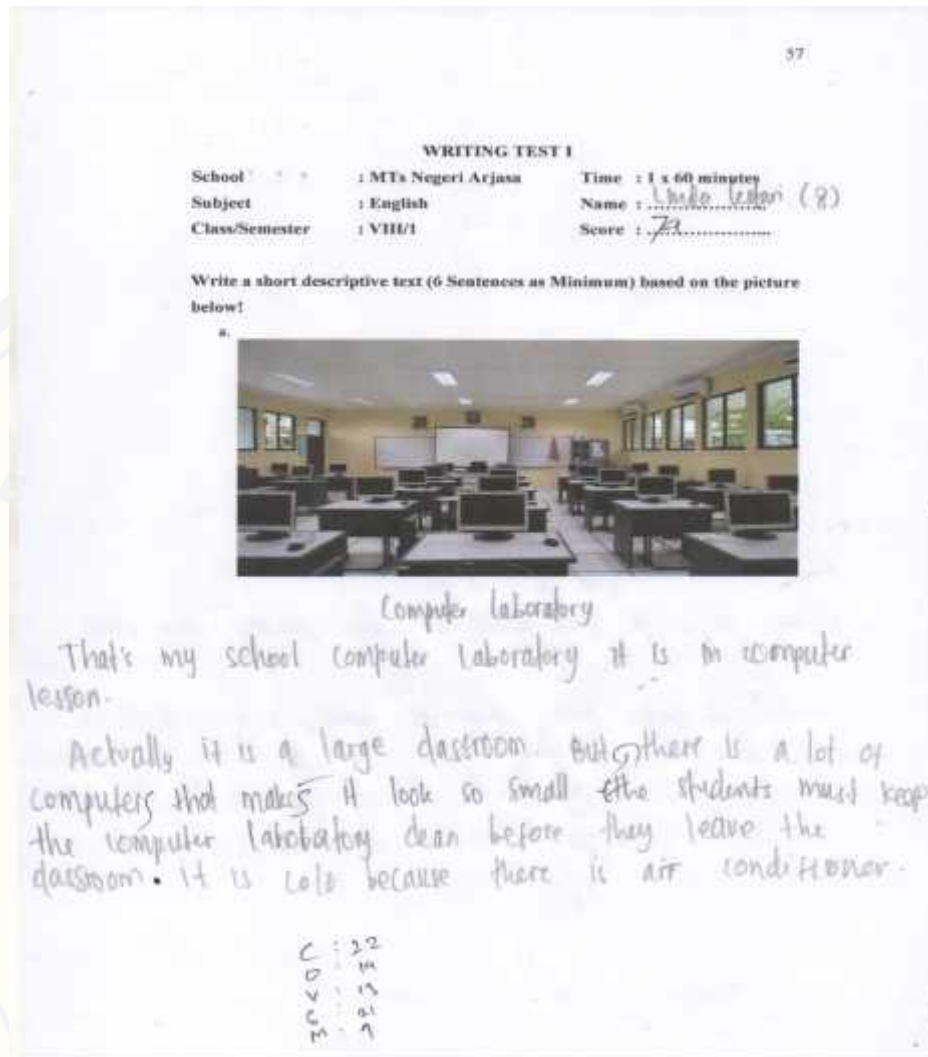 37
WRITING TEST 1
School : MTs Negeri Arjasa Time : 1 x 60 minutes
Subject : English Name : Lestari (8)
Class/Semester : VIII/1 Score :
Write a short descriptive text (6 Sentences as Minimum) based on the picture
below!
a.
Computer laboratory
That's my school computer laboratory it is in computer
lesson.
Actually it is a large classroom. But there is a lot of
computers that makes it look so small the students must keep
the computer labobatory clean before they leave the
classroom. it is cold because there is air conditioner.
C : 22
V :
M : 9